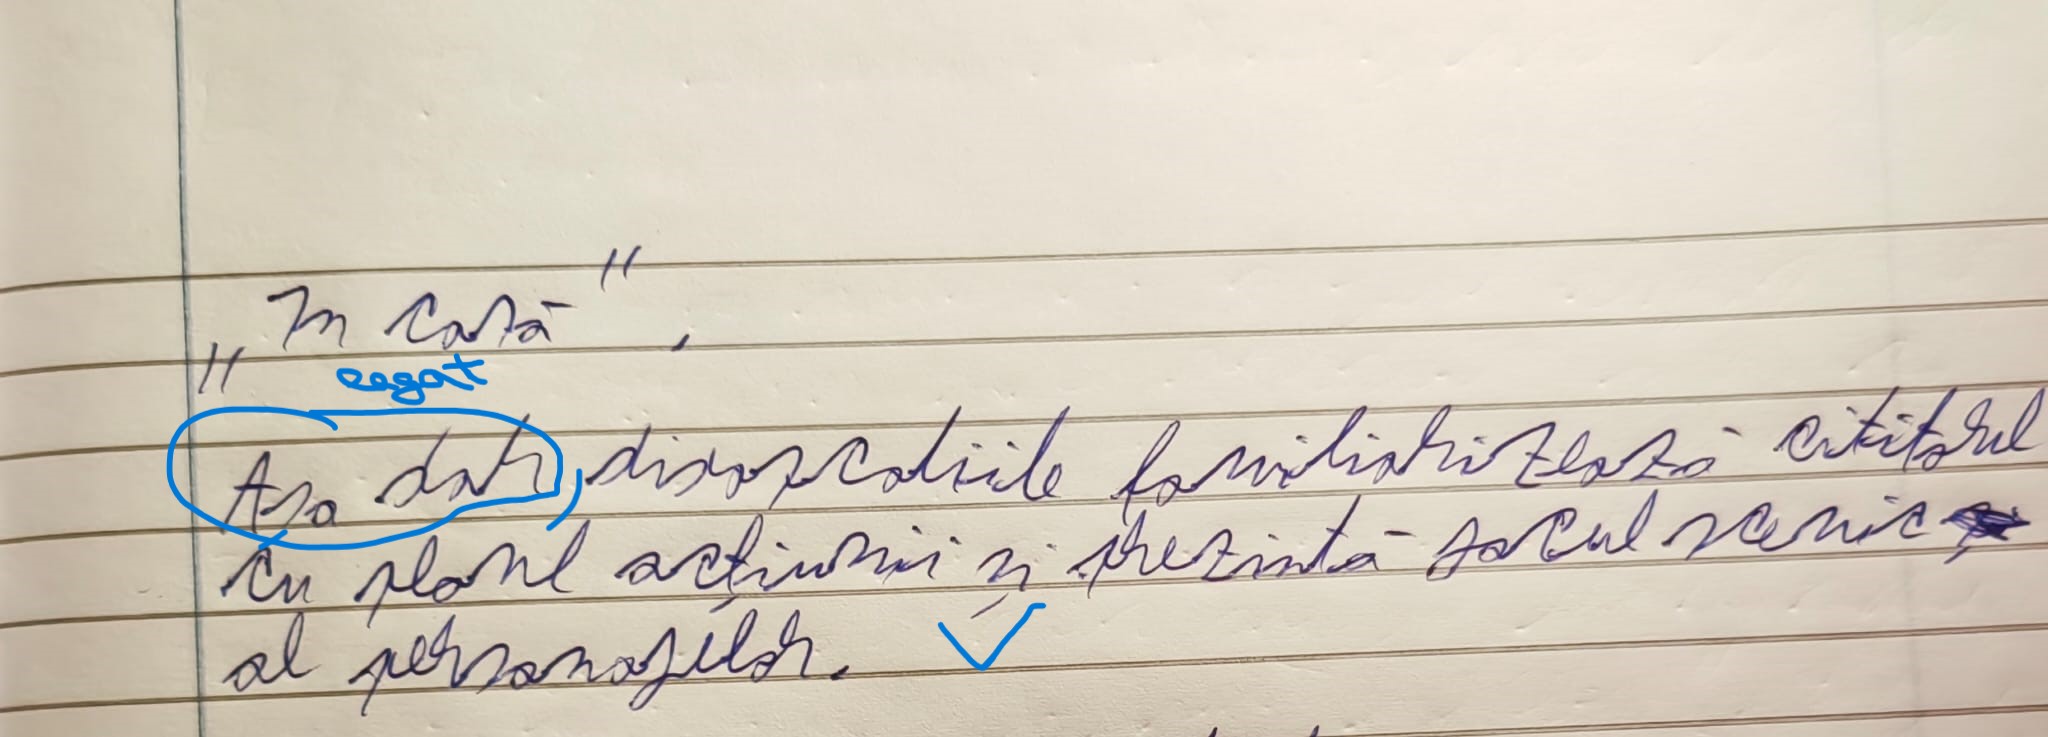 „In casă”,
legat
Asa dar, disascaliile familiarizează cititorul
cu planul acțiunii și prezintă jocul scenic
al personajelor.